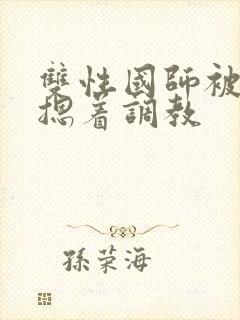 雙性國師被
摁着調教
孫荣海